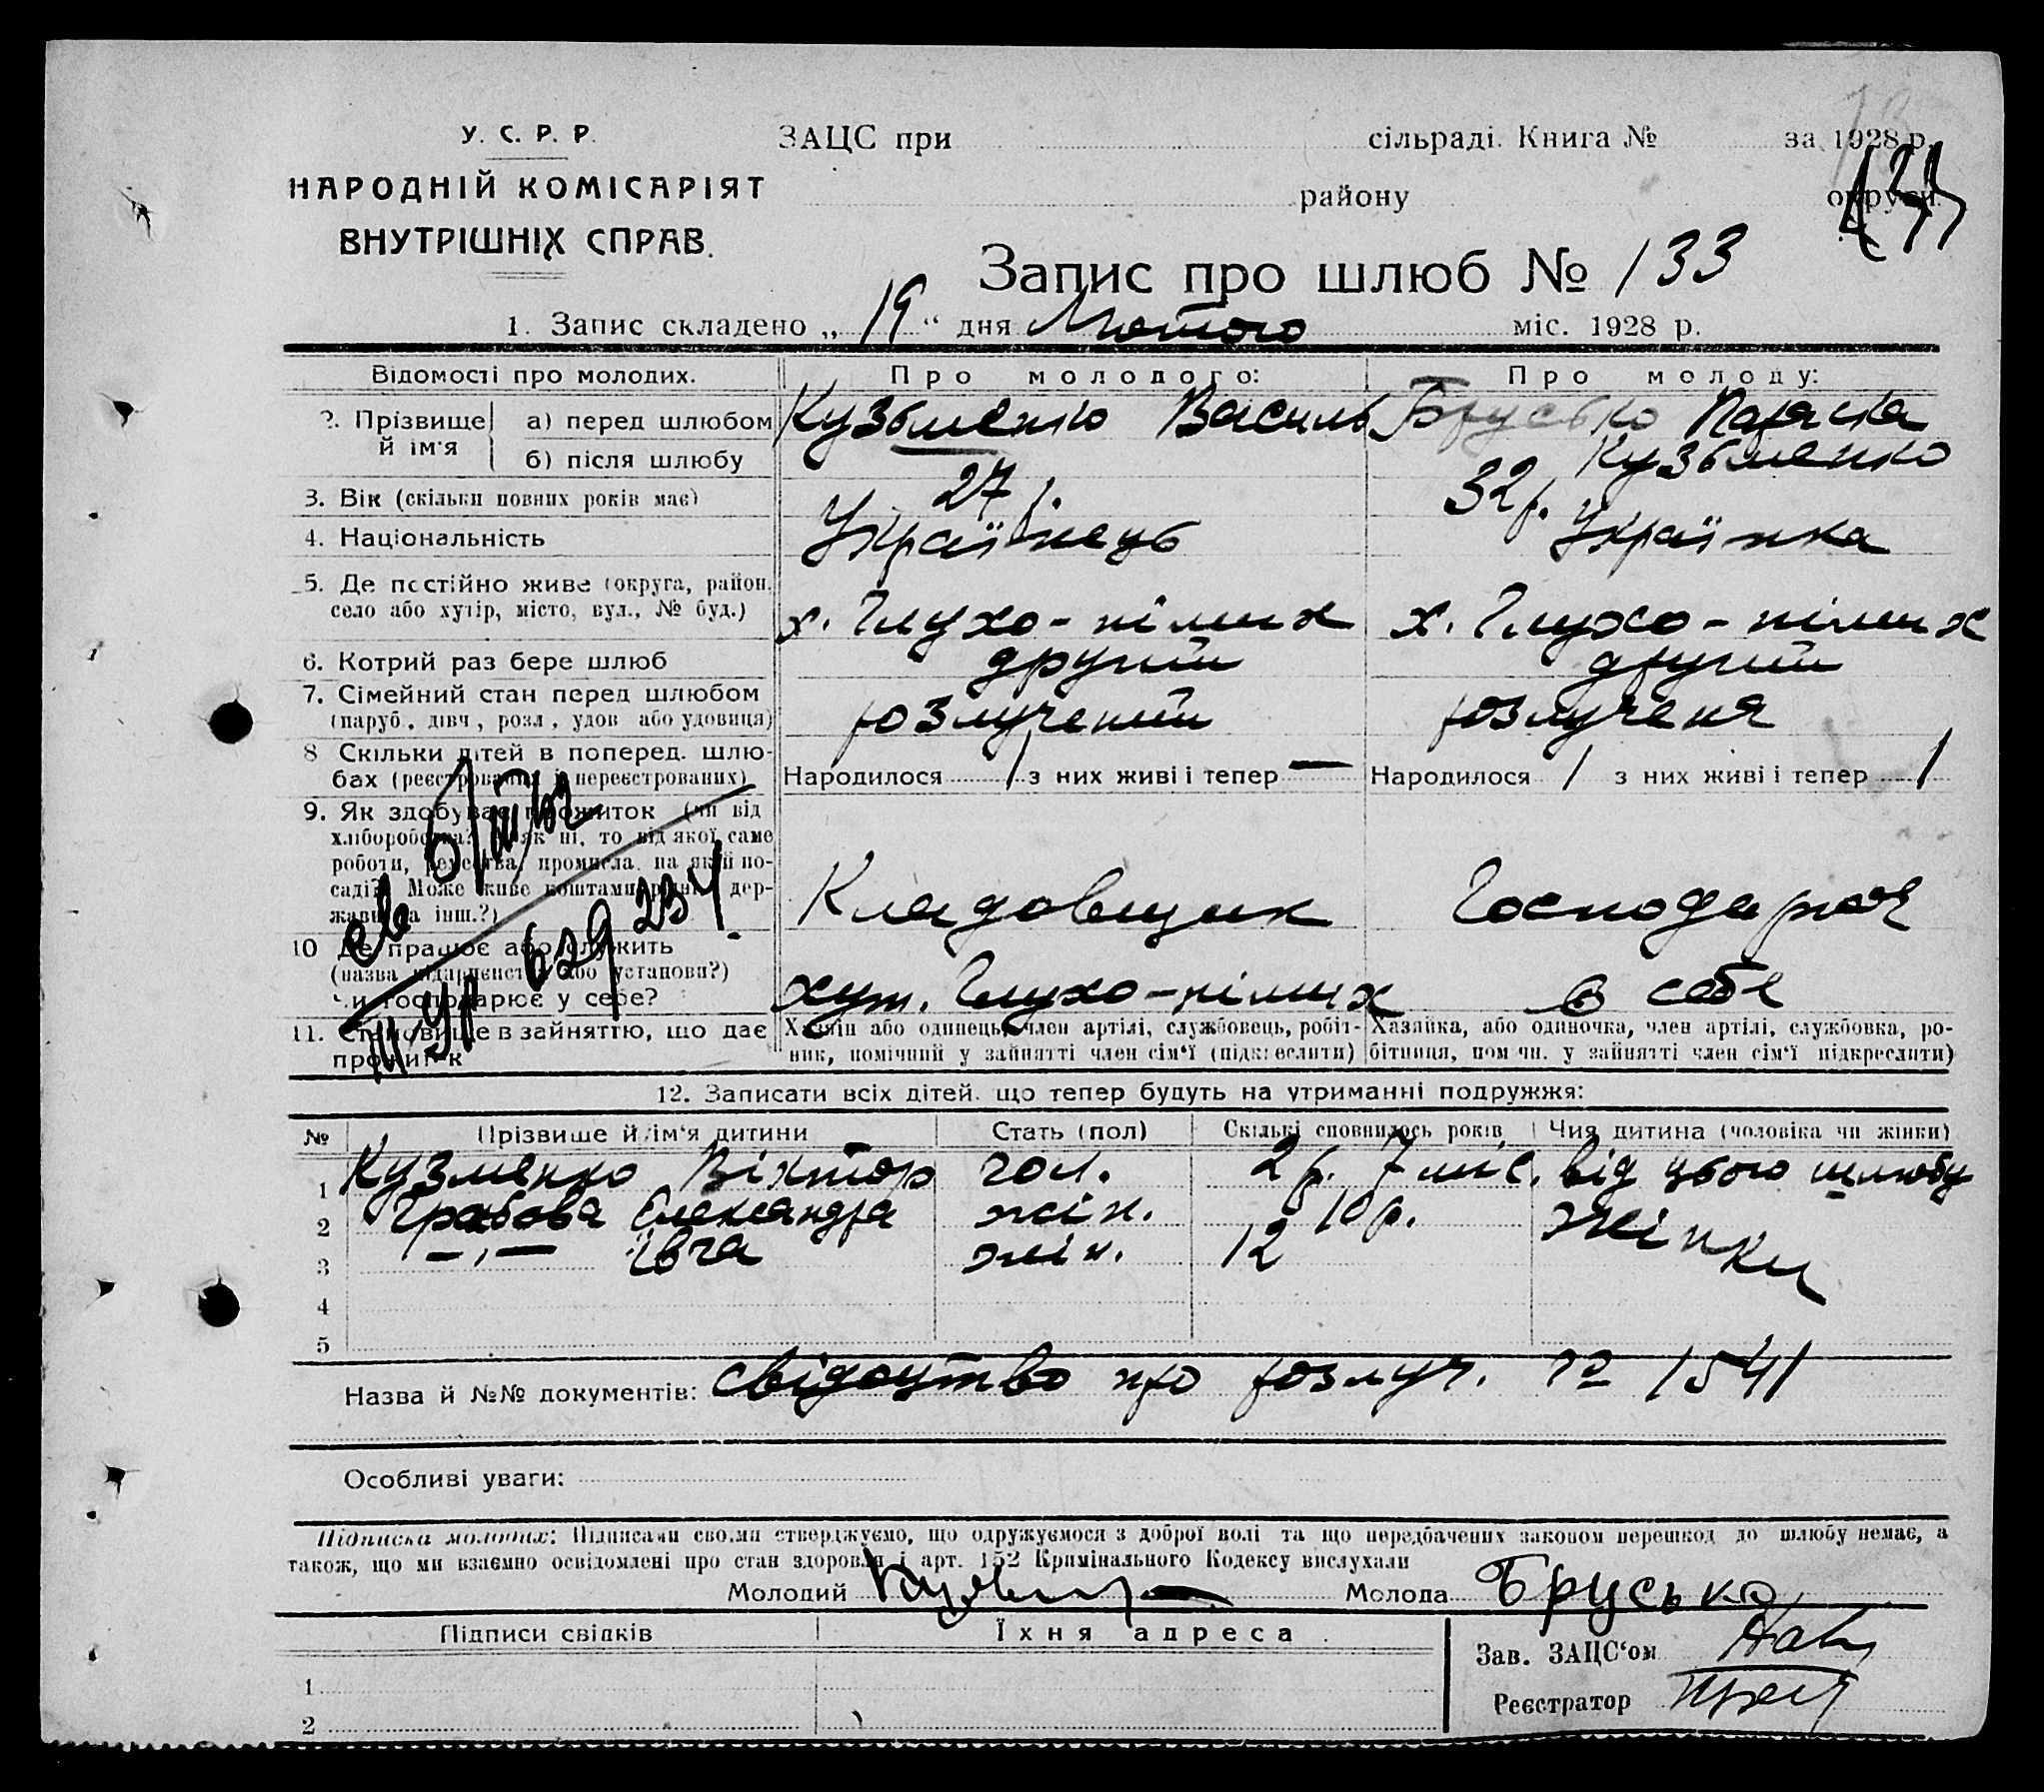 У. С. Р. Р.
НАРОДНІЙ КОМІСАРІЯТ
ВНУТРІШНІХ СПРАВ.
ЗАЦС при сільраді. Книга № за 1928 р.
району округи
Запис про шлюб № 133
1. Запис складено „ 19 “ дня Лютого міс. 1928 р.
Відомості про молодих. Про молодого: Про молоду:
2. Прізвище й ім'я
а) перед шлюбом Кузьменко Василь Брусько Параска
б) після шлюбу Кузьменко
3. Вік (скільки повних років має) 27 р. 32 р.
4. Національність Українець Українка
5. Де постійно живе (округа, район,
село або хутір, місто, вул., № буд.) х. Глухо-німих х. Глухо-німих
6. Котрий раз бере шлюб другий другий
7. Сімейний стан перед шлюбом
(паруб., дівч., розл., удов або удовиця) розлучений розлученя
8 Скільки дітей в поперед. шлю-
бах (реєстрованих і нереєстрованих) Народилося 1 з них живі і тепер — Народилося 1 з них живі і тепер 1
9. Як здобуває прожиток (чи від
хліборобства? Як ні, то від якої саме
роботи, ремества, промисла, на якій по-
саді? Може живе коштами рідні, дер-
жави та інш.?) Кладовщик Господарює
10 Де працює або служить
(назва підприємства або установи?)
чи господарює у себе? хут. Глухо-німих в себе
11. Становище в зайняттю, що дає
прожиток
Хазяїн або одинець, член артілі, службовець, робіт-
ник, помічний у зайнятті член сім'ї (підкреслити)
Хазяйка, або одиночка, член артілі, службовка, ро-
бітниця, пом чн. у зайнятті член сім'ї підкреслити)
629 234
12. Записати всіх дітей, що тепер будуть на утриманні подружжя:
№ Прізвище й ім'я дитини Стать (пол) Скількі сповнилось років Чия дитина (чоловіка чи жінки)
1 Кузменко Віктор чол. 2 р. 7 міс. від цього шлюбу
2 Грабова Олександра жін. 10 р. жінки
3 —„— Івга жін. 12
4
5
Назва й №№ документів: свідоцтво про розлуч. № 1541
Особливі уваги:
Підписка молодих: Підписами своїми стверджуємо, що одружуємося з доброї волі та що передбачених законом перешкод до шлюбу немає, а
також, що ми взаємно освідомлені про стан здоровля і арт. 152 Кримінального Кодексу вислухали
Молодий Молода Брусько
Підписи свідків Їхня адреса
Зав. ЗАЦС'ом
1
Реєстратор
2